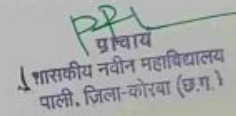 प्राचार्य
शासकीय नवीन महाविद्यालय
पाली, जिला-कोरबा (छ.ग.)